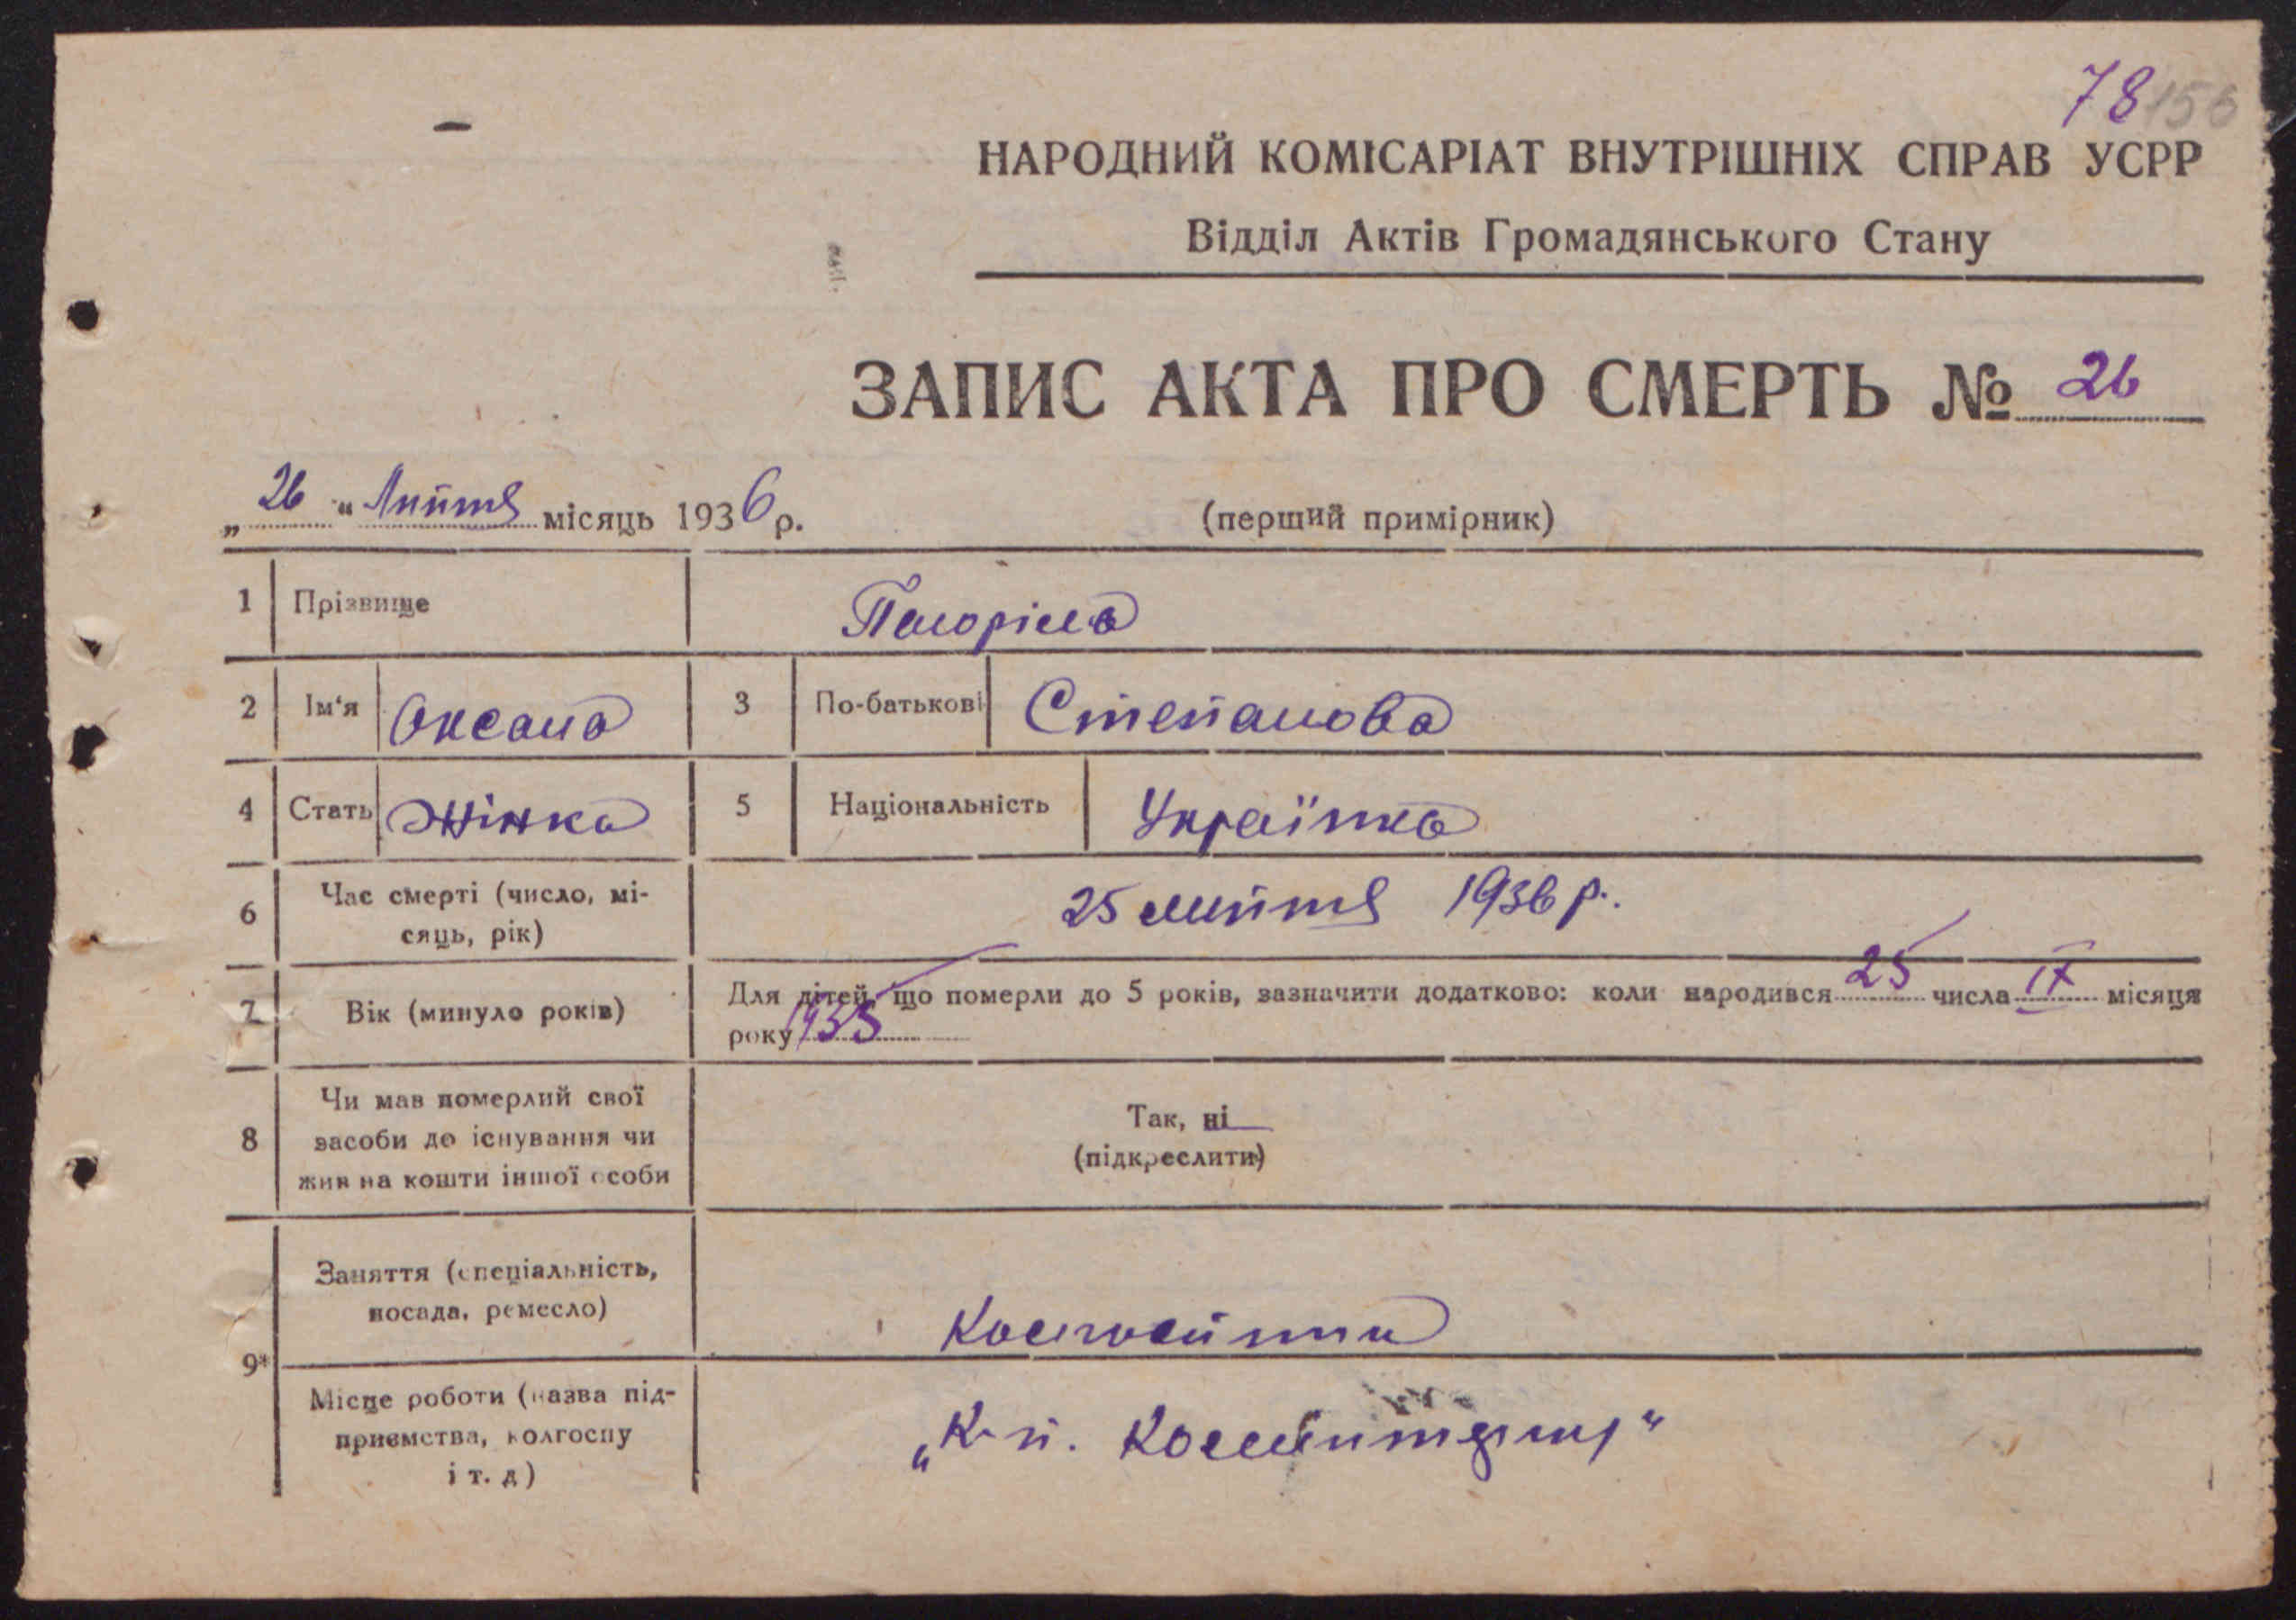 78 156
НАРОДНИЙ КОМІСАРІАТ ВНУТРІШНІХ СПРАВ УСРР
Відділ Актів Громадянського Стану
ЗАПИС АКТА ПРО СМЕРТЬ № 26
„ 26 “ Липня місяць 1936 р. (перший примірник)
1 Прізвище Погоріла
2 Ім‘я Оксана 3 По-батькові Степанова
4 Стать Жінка 5 Національність Українка
6 Час смерті (число, мі-
сяць, рік) 25 липня 1936 р.
7 Вік (минуло років) Для дітей, що померли до 5 років, зазначити додатково: коли народився 25 числа IX місяця
року 1935
8 Чи мав померлий свої
засоби до існування чи
жив на кошти іншої особи
Так, ні
(підкреслити)
9* Заняття (спеціальність,
посада, ремесло)
Місце роботи (назва під-
приємства, колгоспу
і т. д)
„К-п. Комінтерну“